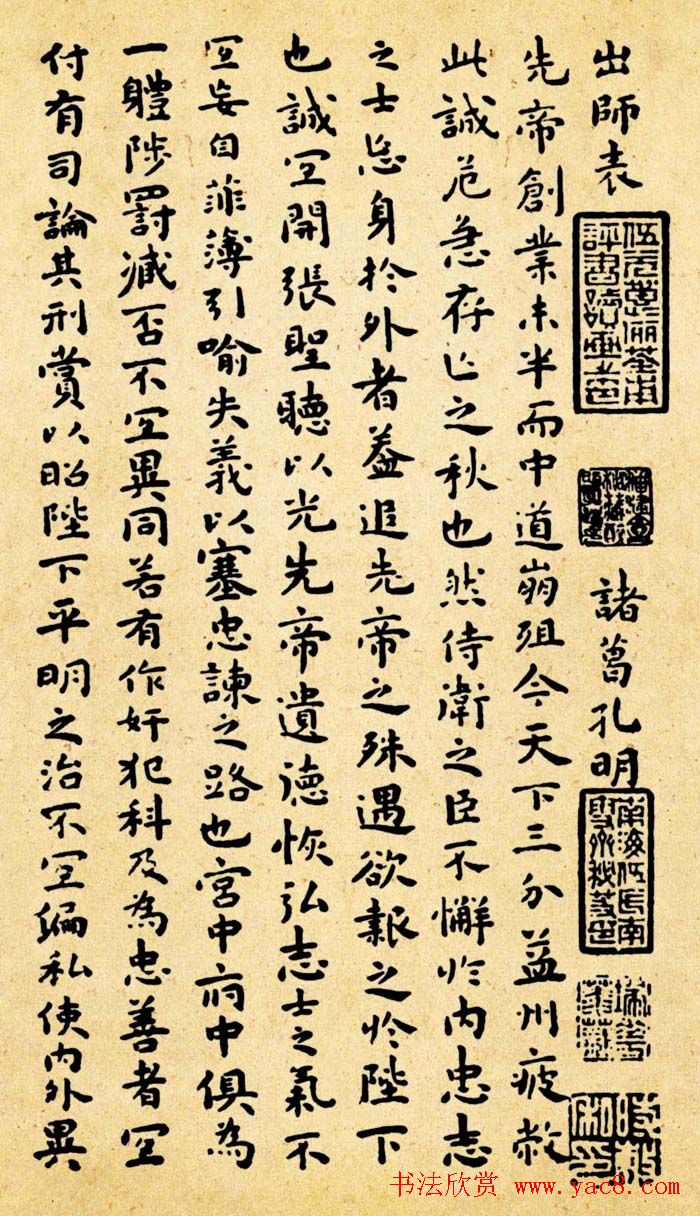 出師表
諸葛孔明
先帝創業未半而中道崩殂今天下三分益州疲敝
此誠危急存亡之秋也然侍衛之臣不懈於内忠志
之士忘身於外者蓋追先帝之殊遇欲報之於陛下
也誠冝開張聖聽以光先帝遺德恢弘志士之氣不
冝妄自菲薄引喻失義以塞忠諫之路也宮中府中俱為
一體陟罰減否不冝異同若有作奸犯科及為忠善者冝
付有司論其刑賞以昭陛下平明之治不冝偏私使内外異
书法欣赏 www.yac8.com